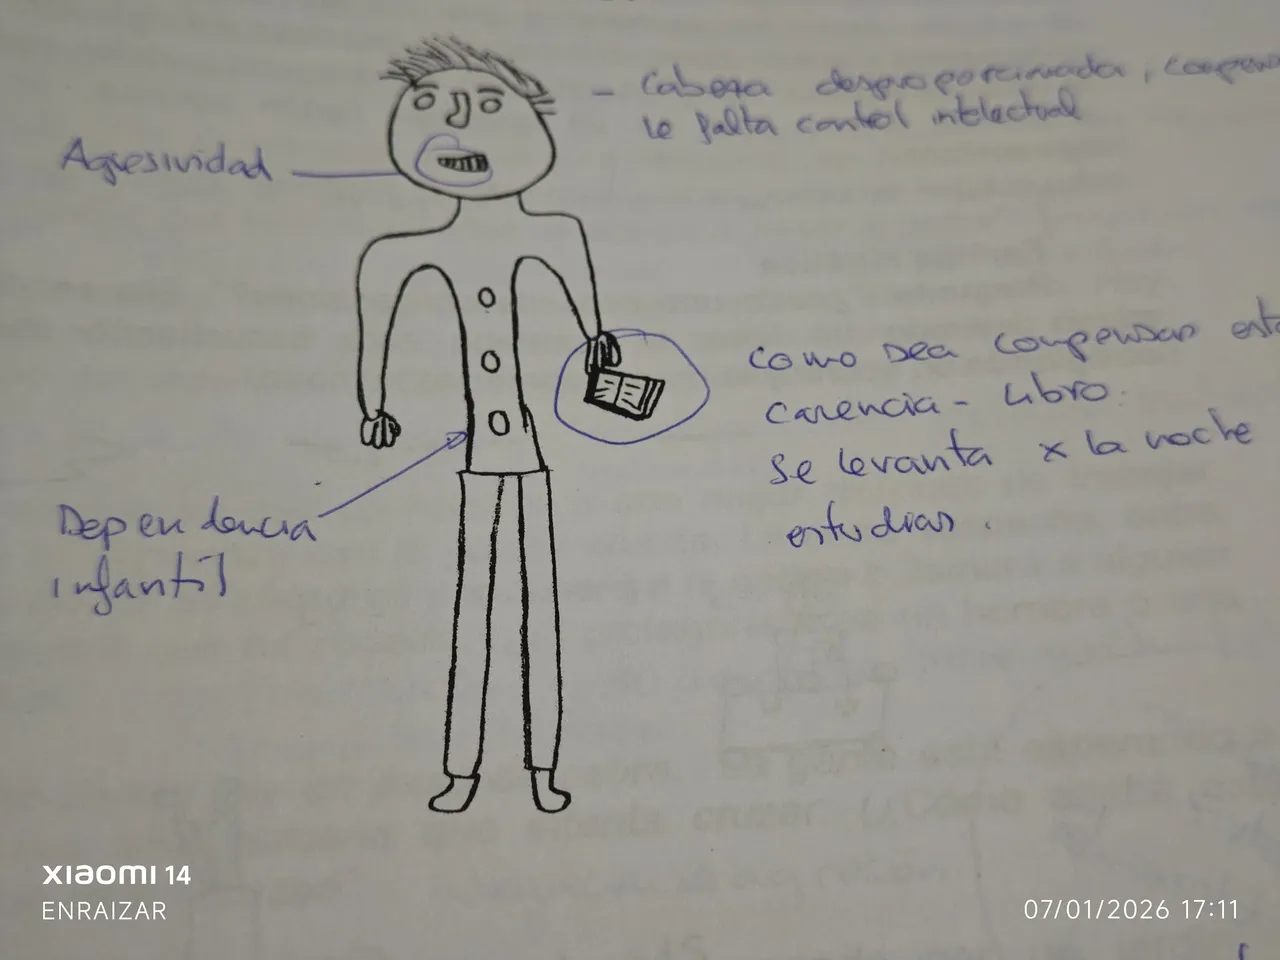 - Cabeza desproporcionada, compensa
le falta control intelectual
Agresividad
como sea compensar esta
carencia - Libro.
Se levanta x la noche
estudiar.
Dependencia
infantil
XIAOMI 14
ENRAIZAR
07/01/2026 17:11